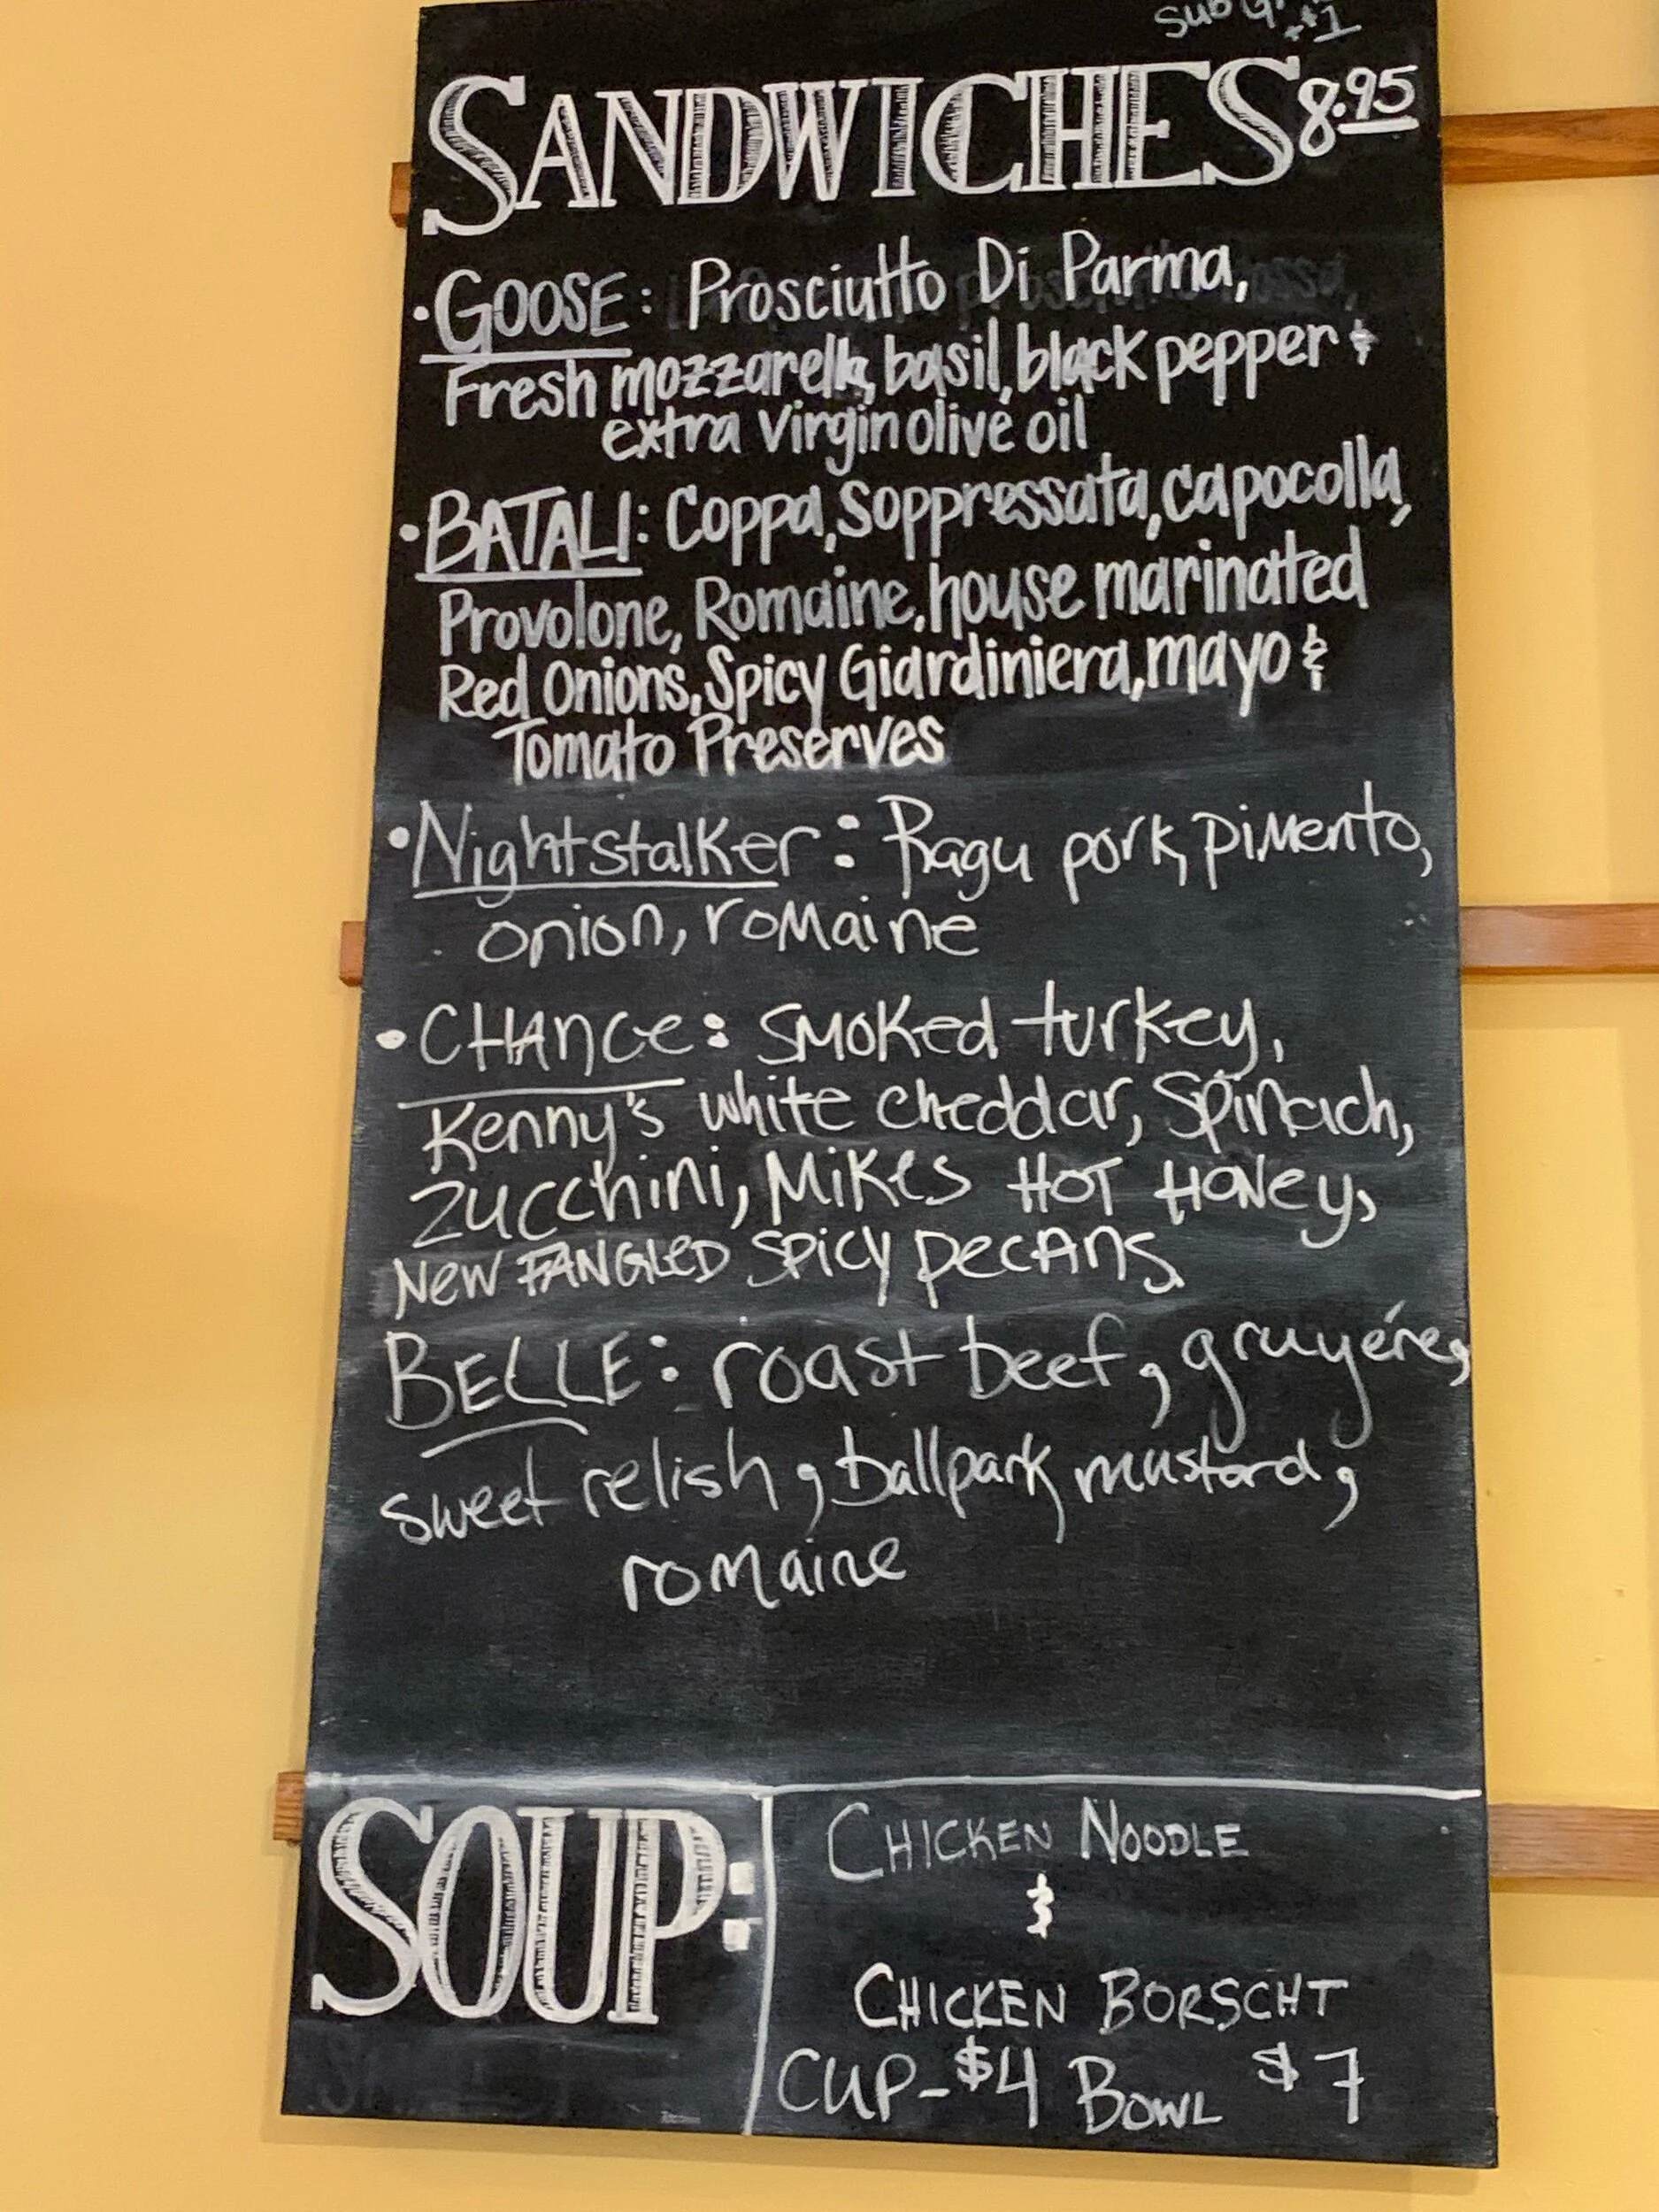 Sub
$1
SANDWICHES 8.95
• GOOSE: Prosciutto Di Parma,
Fresh mozzarella, basil, black pepper &
extra virgin olive oil
• BATALI: Coppa, Soppressata, capocolla,
Provolone, Romaine, house marinated
Red Onions, Spicy Giardiniera, mayo &
Tomato Preserves
• Nightstalker: Ragu pork, pimento,
onion, romaine
• CHANCe: smoked turkey,
Kenny's white cheddar, spinach,
zucchini, Mikes HOT Honey,
New FANGLeD spicy pecans
BELLE: roast beef, gruyére,
sweet relish, ballpark mustard,
romaine
SOUP:
CHICKEN NOODLE
&
CHICKEN BORSCHT
CUP-$4 BOWL $7